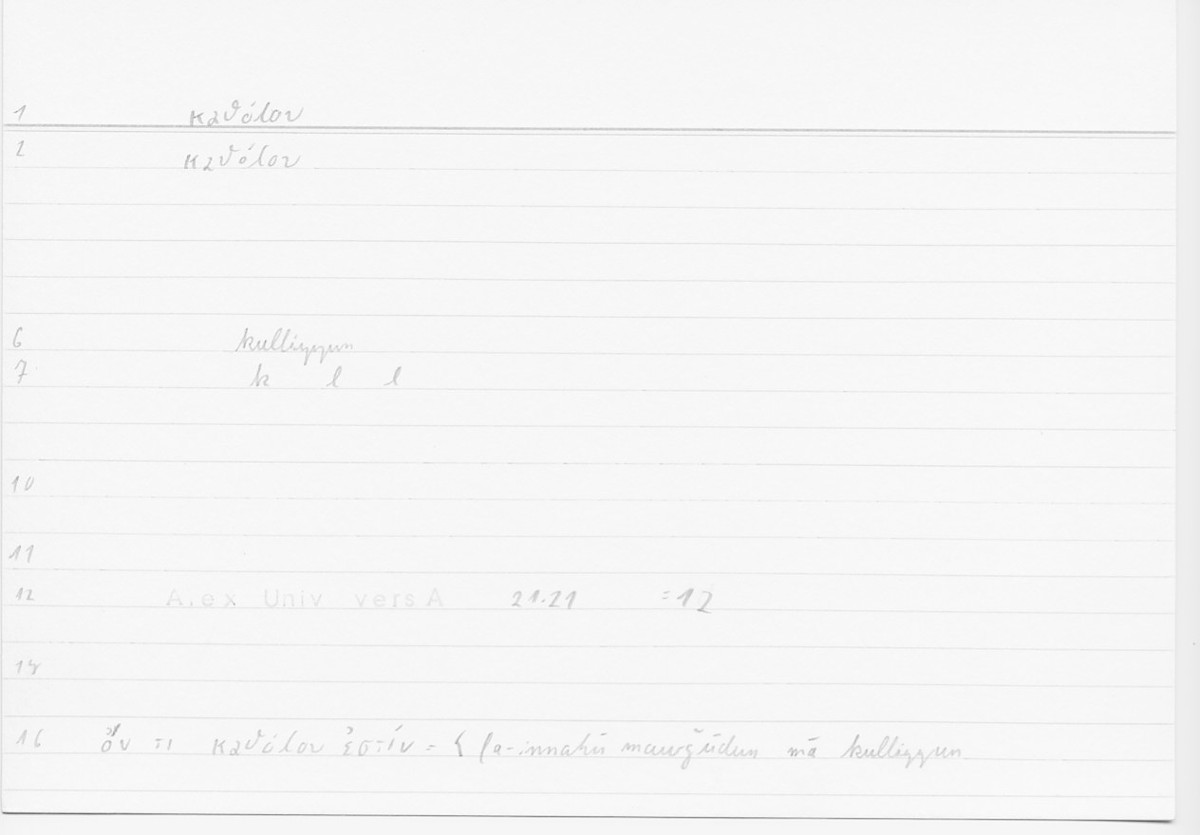 1 καθόλου
2 καθόλου
6 kulliyyun
7 k l l
10
11
12 A.ex Univ vers A 21.21 =12
14
16 ὄν τι καθόλου ἐστίν = { fa-innahū mawǧūdun mā kulliyyun